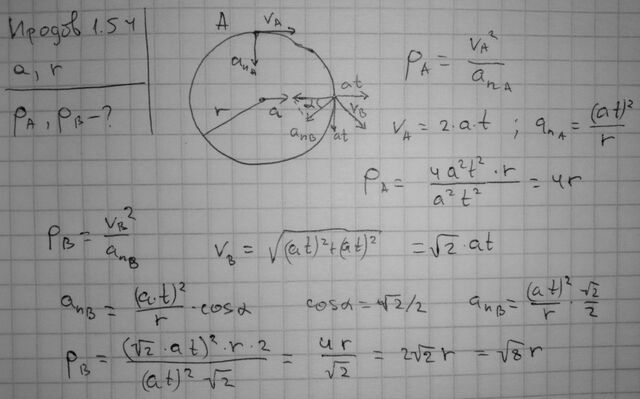 Иродов 1.54
a, r
ρ_A, ρ_B - ?
A v_A
a_{n_A}
r a α at
a_{n_B} at v_B
ρ_A = v_A² / a_{n_A}
v_A = 2·a·t ; a_{n_A} = (at)² / r
ρ_A = 4a²t²·r / a²t² = 4r
ρ_B = v_B² / a_{n_B} v_B = √((at)²+(at)²) = √2·at
a_{n_B} = (a·t)² / r · cosα cosα = √2/2 a_{n_B} = (at)² / r · √2 / 2
ρ_B = (√2·at)²·r·2 / (at)²√2 = 4r / √2 = 2√2 r = √8 r